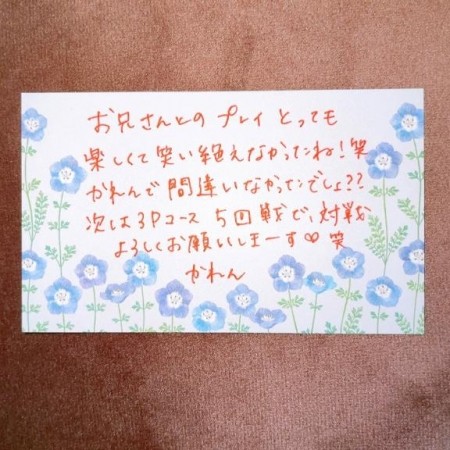 お兄さんとの プレイ とっても
楽しくて笑い絶えなかったね！笑
かれんで間違いなかったでしょ??
次は3Pコース 5回戦で、対戦
よろしくお願いしまーす♡笑
かれん